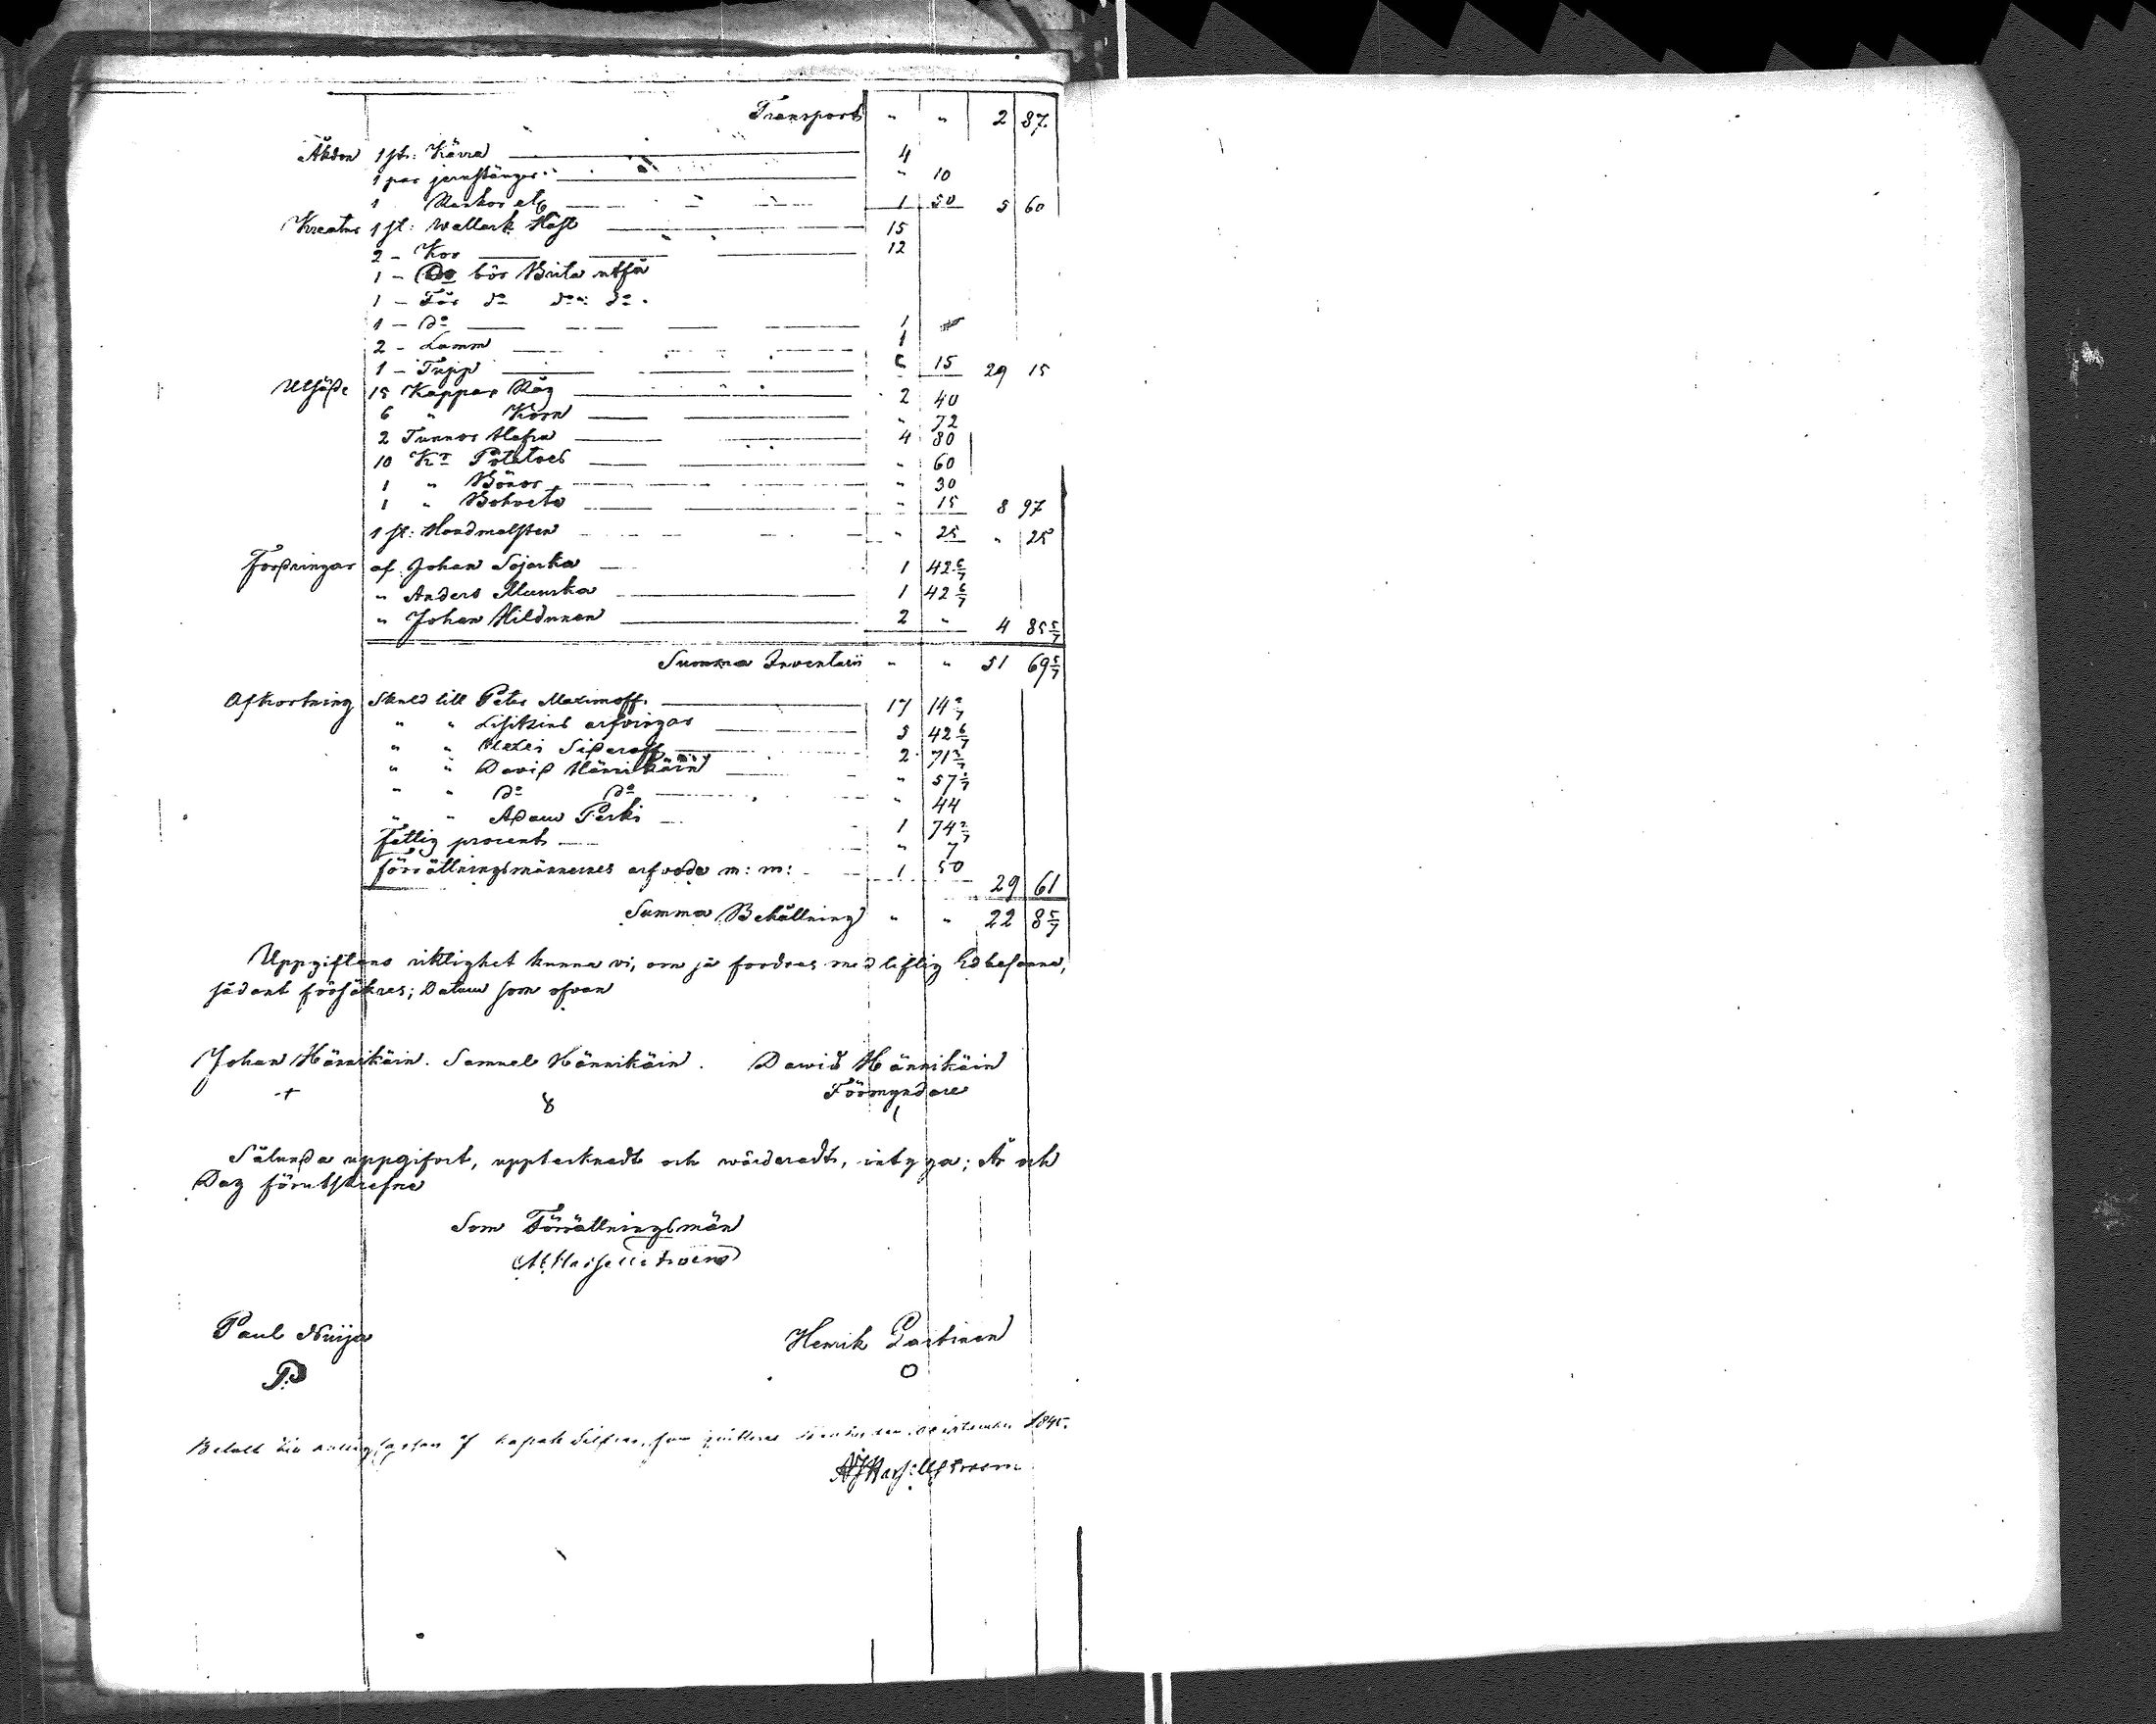 Transport " " 2 87.
Åkdon 1 st: Kärra 4
1 par jernstänger " 10
1 etc 1 50 5 60
Kreatur 1 st: Wallack Häst 15
2 - Kor 12
1 - Do bör Brita utfå
1 - Får do do do.
1 - do 1
2 - Lamm 1
1 - Tupp 15 29 15
Utsäde 15 Kappar Råg 2 40
6 " Korn " 72
2 Tunnor Hafra 4 80
10 Kr Potatoes " 60
1 " Bönor " 30
1 " Bohvete " 15 8 97
1 st: Handmalsten " 25 " 25
Fordringar af Johan Sojarka 1 42 6/7
" Anders 1 42 6/7
" Johan Hildunen 2 " 4 85 5/7
Summa Inventarii " " 51 69 5/7
Afkortning Skuld till Peter Maximoff. 17 14 2/7
" " arfvingar 5 42 6/7
" " Alexei Sideroff 2 71 3/7
" " David Hännikäin " 57 1/7
" " do do " 44
" " Adam Perki 1 74 2/7
Fattig procent " 7
förrättningsmännernes arfvode m: m: 1 50
29 61
Summa Behållning " " 22 8 5/7
Uppgiftens riktighet kunna vi, om så fordras med liflig Ed besanna,
sådant försäkres; Datum som ofvan
Johan Hännikäin. Samuel Hännikäin. Dawid Hännikäin
+ 8 Förmyndare
Sålunda uppgifvit, upptecknadt och wärderadt, intyga; År och
Dag förutskrefne
Som Förrättningsmän
Paul Nuija Henrik Partinen
P O
Betalt till kopek Silfver, som qvitteras September 1845.